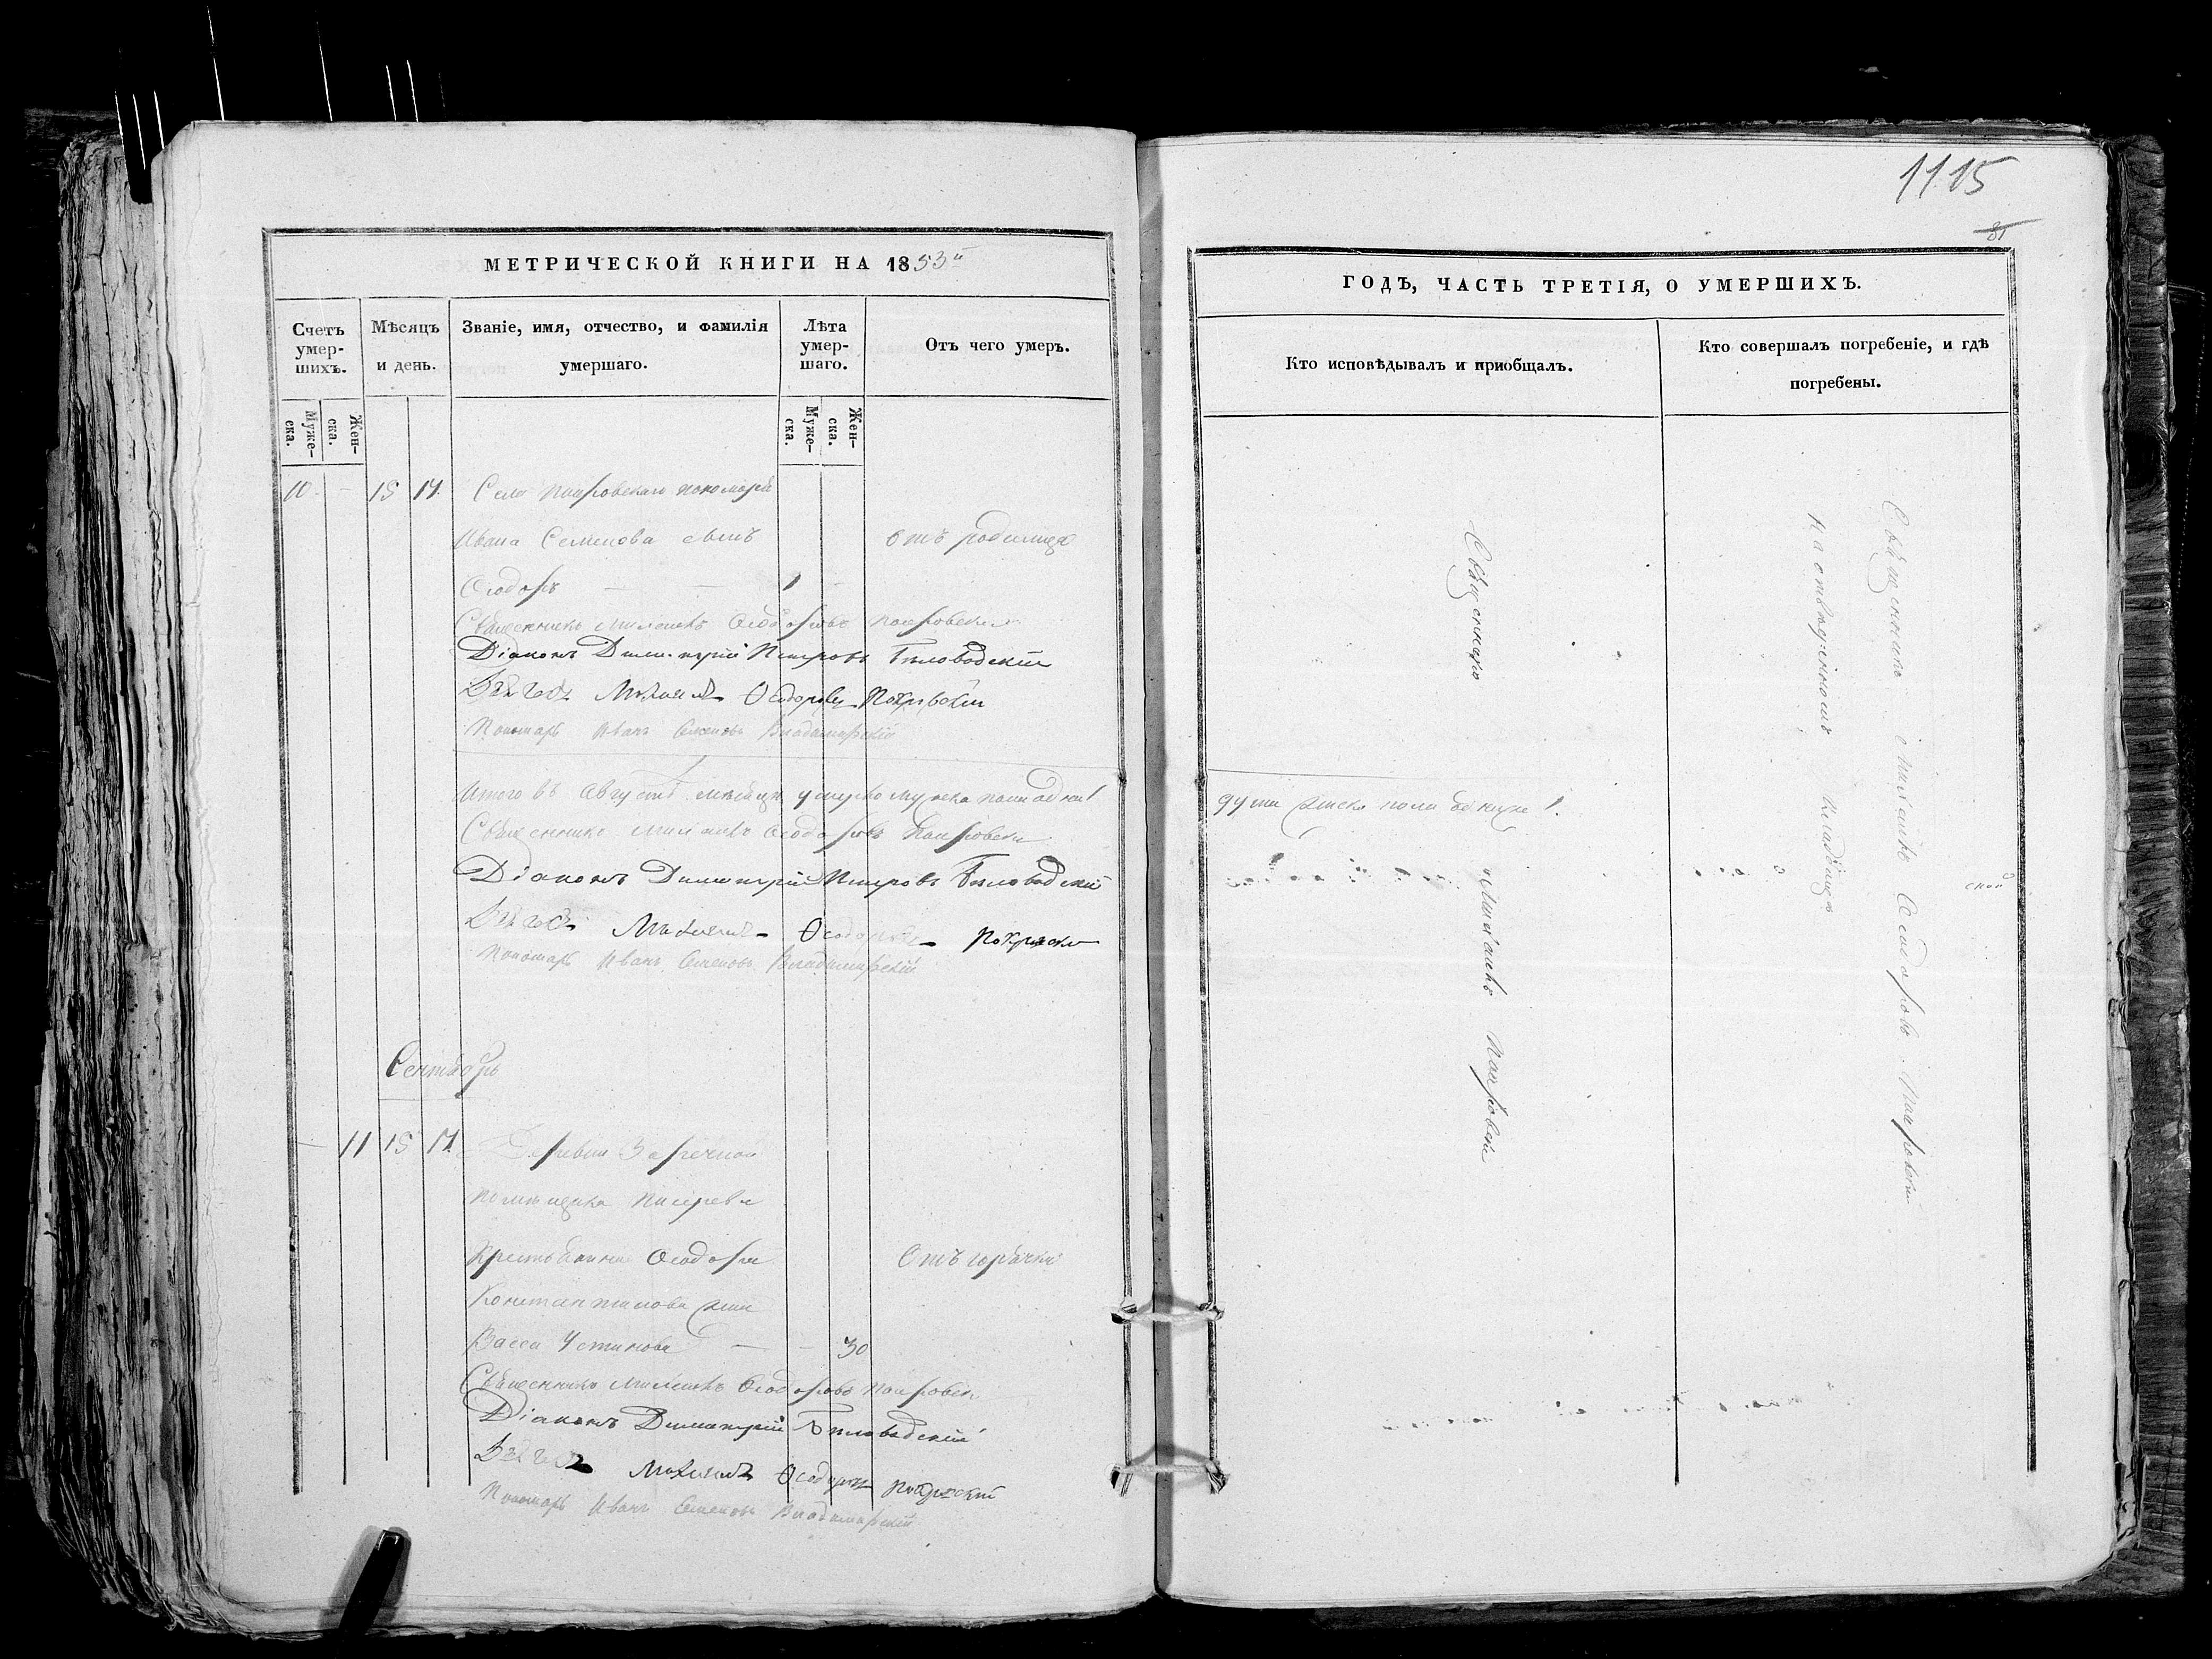 1115
81
МЕТРИЧЕСКОЙ КНИГИ НА 1853й
Счетъ умер-шихъ.
Мѣсяцъ и день.
Званіе, имя, отчество, и фамилія умершаго.
Лѣта умер-шаго.
Отъ чего умеръ.
Муже-ска.
Жен-ска.
Муже-ска.
Жен-ска.
10. - 15 17. Села Покровскаго пономаря
Ивана Семенова сынъ
отъ родимца
Ѳеодоръ — — 1 -
Священникъ Михаилъ Ѳеодоровъ Покровскій
Діаконъ Димитрій Петровъ Бѣловодскій
Дьячекъ Михаилъ Ѳеодоровъ Покровскій
Пономарь Иванъ Семеновъ Владимирскій
Итого въ Августѣ мѣсяцѣ умерло мужеска пола одна 1
Священникъ Михаилъ Ѳеодоровъ Покровскій
Діаконъ Димитрій Петровъ Бѣловодскій
Дьячекъ Михаилъ Ѳеодоровъ Покровскій
Пономарь Иванъ Семеновъ Владимирскій
Сентябрь
- 11 15 17. Деревни Заречной
помѣщика Писарева
Крестьянина Ѳеодора
Отъ горячки
Константинова жена
Васса Устинова — - 30
Священникъ Михаилъ Ѳеодоровъ Покровскій
Діаконъ Димитрій Бѣловодскій
Дьячекъ Михаилъ Ѳеодоровъ Покровскій
Пономарь Иванъ Семеновъ Владимирскій
ГОДЪ, ЧАСТЬ ТРЕТІЯ, О УМЕРШИХЪ.
Кто исповѣдывалъ и приобщалъ.
Кто совершалъ погребеніе, и гдѣ погребены.
душа женска пола 1.
Священникъ Михаилъ Покровскій
Священникъ Михаилъ Ѳеодоровъ Покровскій
на кладбищѣ